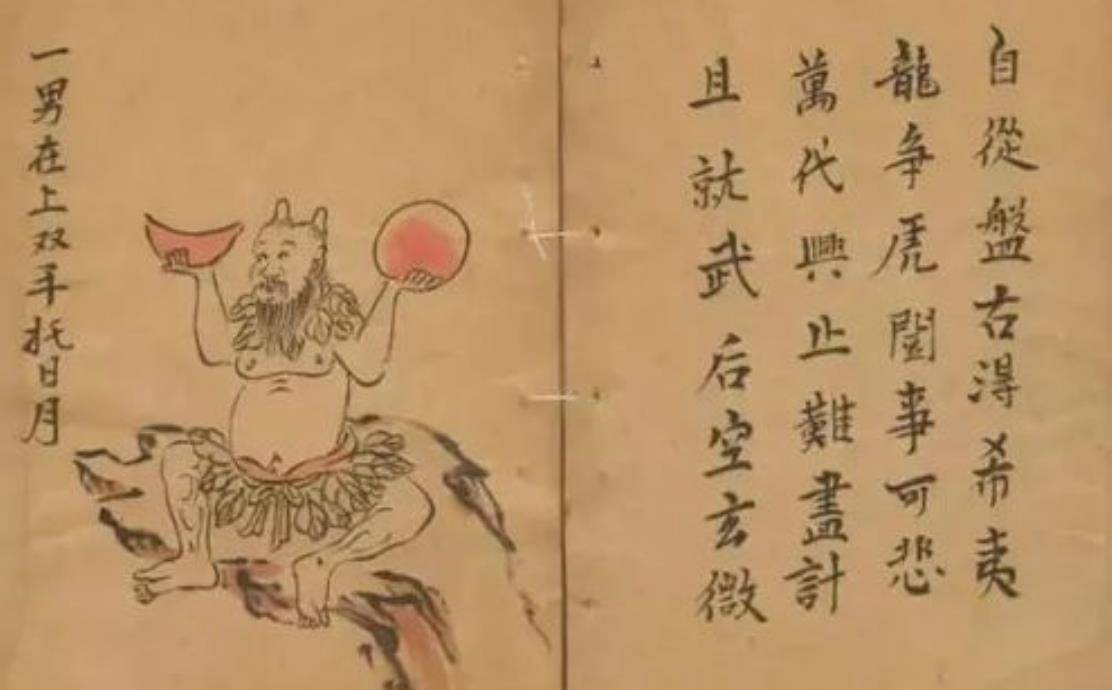 自從盤古淂希夷
龍争虎闘事可悲
萬代興止難盡計
且就武后空玄微
一男在上双手托日月